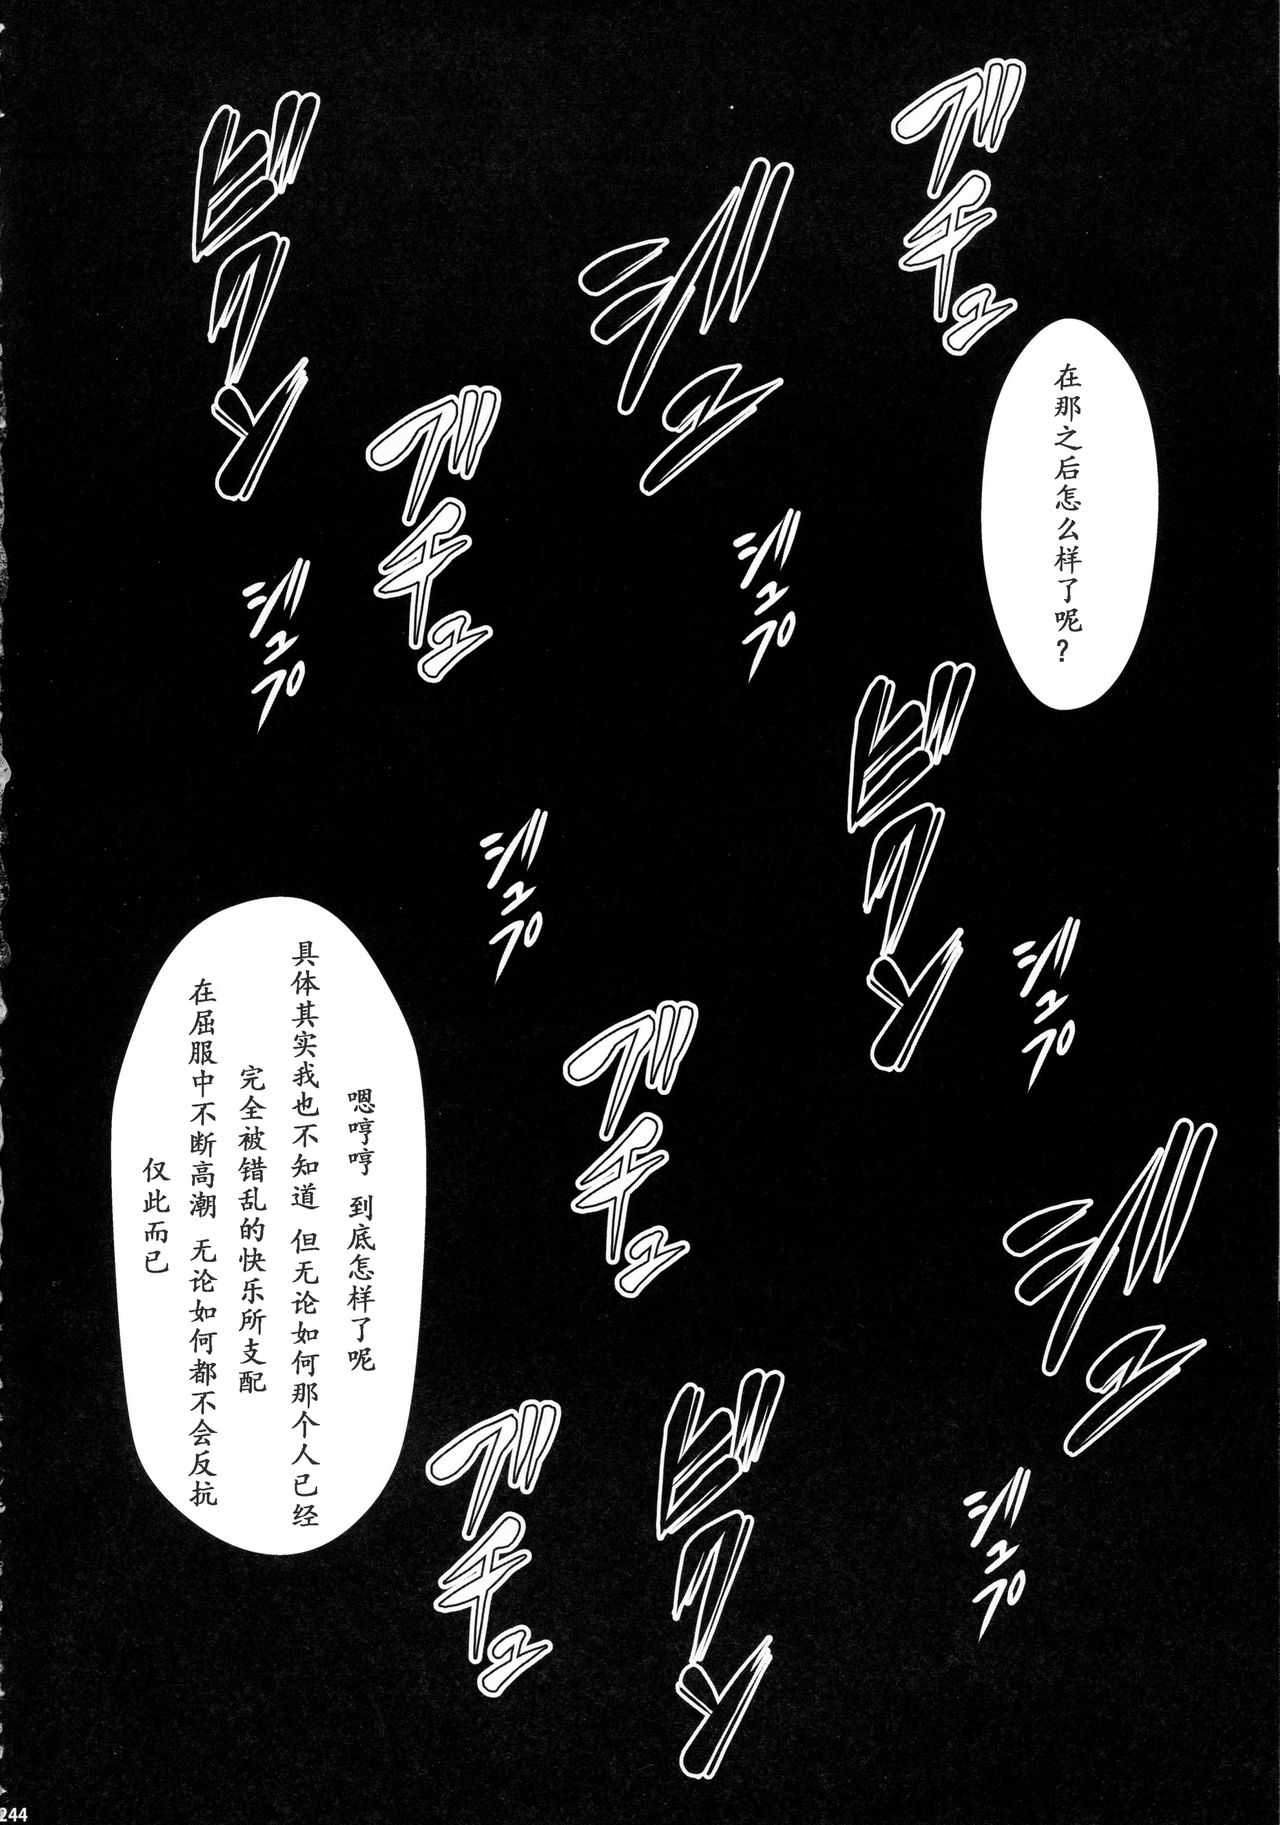 ゲチュ
ジュ
ビクン
在那之后怎么样了呢？
ゲチュ
ジュプ
ジュプ
ビクン
ジュプ
ジュプ
ゲチュ
ジュ
嗯哼哼 到底怎样了呢
具体其实我也不知道 但无论如何那个人已经
完全被错乱的快乐所支配
在屈服中不断高潮 无论如何都不会反抗
仅此而已
ビクン
ゲチュ
ジュプ
244